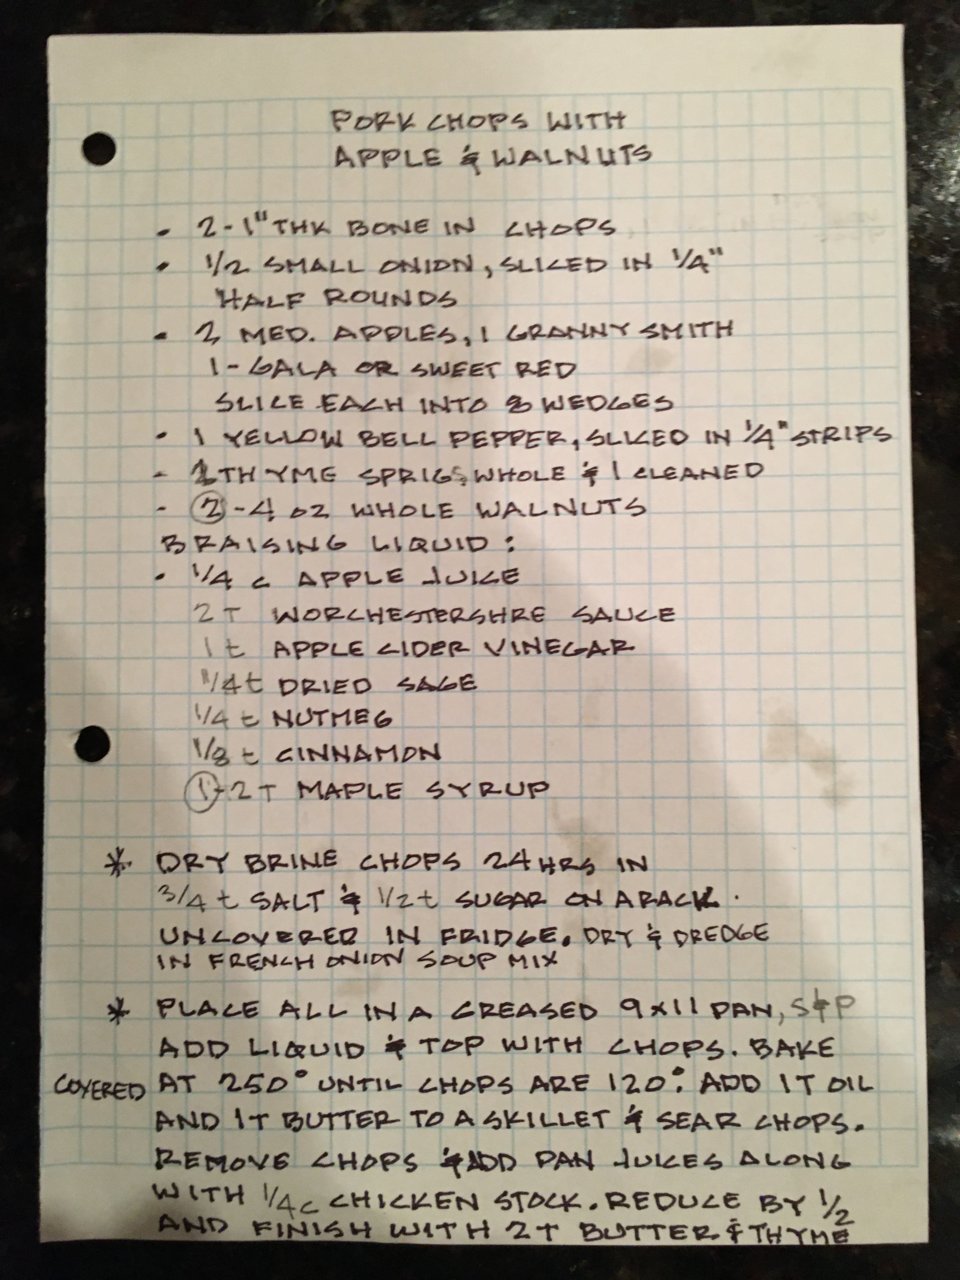 PORK CHOPS WITH
APPLE & WALNUTS
• 2-1" THK BONE IN CHOPS
• 1/2 SMALL ONION, SLICED IN 1/4"
HALF ROUNDS
• 2 MED. APPLES, 1 GRANNY SMITH
1-GALA OR SWEET RED
SLICE EACH INTO 8 WEDGES
• 1 YELLOW BELL PEPPER, SLICED IN 1/4" STRIPS
- 2 THYME SPRIGS, WHOLE & 1 CLEANED
- 2-4 OZ WHOLE WALNUTS
BRAISING LIQUID:
• 1/4 C APPLE JUICE
2T WORCHESTERSHRE SAUCE
1t APPLE CIDER VINEGAR
1/4t DRIED SAGE
1/4t NUTMEG
1/8t CINNAMON
1-2T MAPLE SYRUP
* DRY BRINE CHOPS 24HRS IN
3/4t SALT & 1/2t SUGAR ON A RACK.
UNCOVERED IN FRIDGE. DRY & DREDGE
IN FRENCH ONION SOUP MIX
* PLACE ALL IN A GREASED 9x11 PAN, S&P
ADD LIQUID & TOP WITH CHOPS. BAKE
COVERED AT 250° UNTIL CHOPS ARE 120°. ADD 1T OIL
AND 1T BUTTER TO A SKILLET & SEAR CHOPS.
REMOVE CHOPS & ADD PAN JUICES ALONG
WITH 1/4C CHICKEN STOCK. REDUCE BY 1/2
AND FINISH WITH 2T BUTTER & THYME